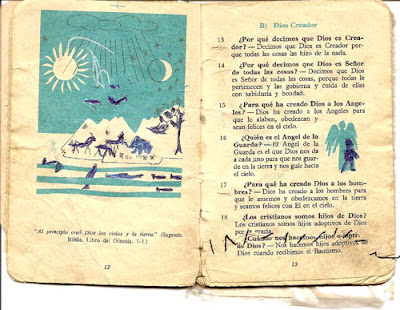 "Al principio creó Dios los cielos y la tierra." (Sagrada
Biblia. Libro del Génesis. 1-1.)
12
B) Dios Creador
13 ¿Por qué decimos que Dios es Crea-
dor? — Decimos que Dios es Creador por-
que todas las cosas las hizo de la nada.
14 ¿Por qué decimos que Dios es Señor
de todas las cosas? — Decimos que Dios
es Señor de todas las cosas, porque todas le
pertenecen y las gobierna y cuida de ellas
con sabiduría y bondad.
15 ¿Para qué ha creado Dios a los Ange-
les? — Dios ha creado a los Angeles para
que le alaben, obedezcan y
sean felices en el cielo.
16 ¿Quién es el Angel de la
Guarda? — El Angel de la
Guarda es el que Dios nos da
a cada uno para que nos guar-
de en la tierra y nos guíe hacia
el cielo.
17 ¿Para qué ha creado Dios a los hom-
bres? — Dios ha creado a los hombres para
que le amemos y obedezcamos en la tierra
y seamos felices con El en el cielo.
18 ¿Los cristianos somos hijos de Dios?
Los cristianos somos hijos adoptivos de Dios
por la gracia.
¿Cuándo nos hacemos hijos adopti-
vos de Dios? — Nos hacemos hijos adoptivos de
Dios cuando recibimos el Bautismo.
13